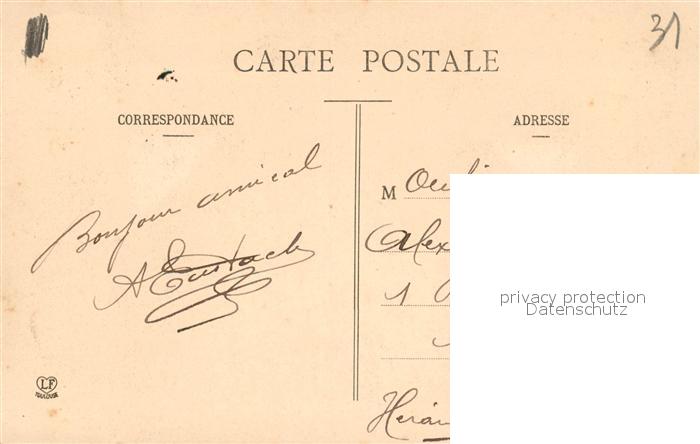 31
CARTE POSTALE
CORRESPONDANCE
ADRESSE
Bonjour amical
A Eustache
M
Alex
1
privacy protection
Datenschutz
LF
TOULOUSE